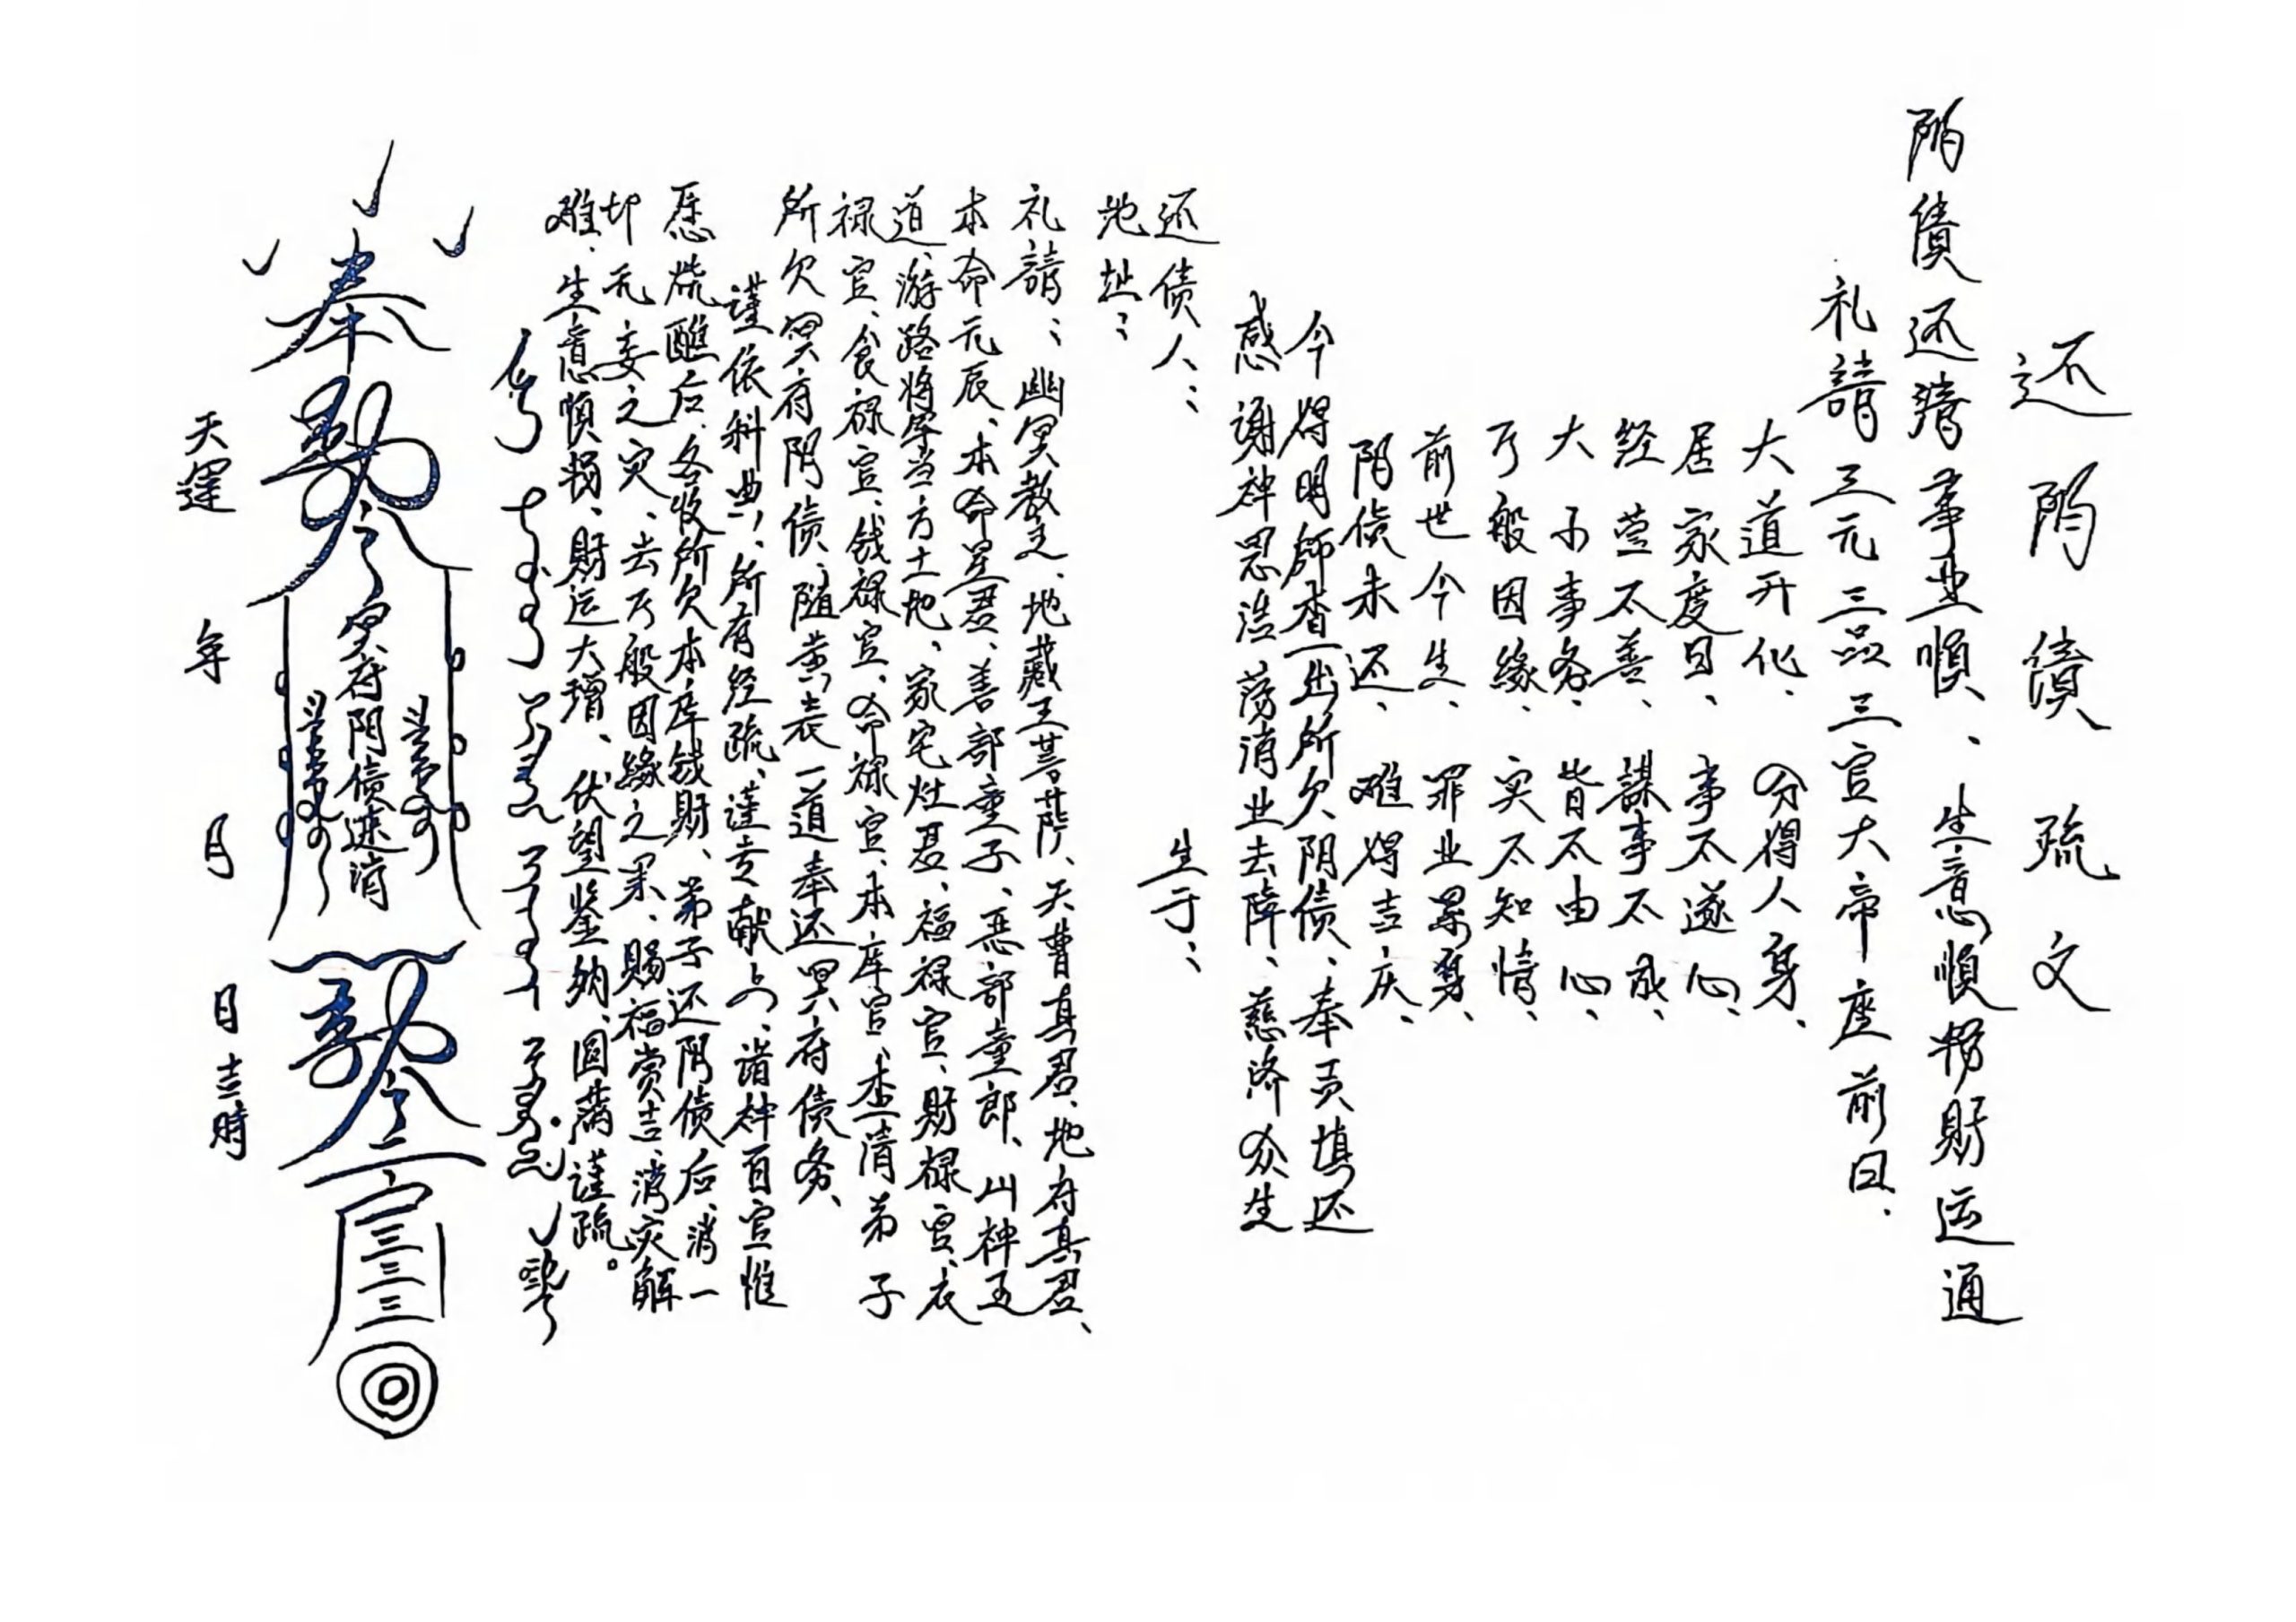 还阴债疏文
阴债还清事业顺、生意顺畅财运通
礼請三元三品三官大帝座前曰、
大道开化、分得人身、
居家度日、事不遂心、
经营不善、謀事不成、
大小事务、皆不由心、
万般因缘、实不知情、
前世今生、罪业累身、
阴债未还、难得吉庆、
今得明師查出所欠阴债、奉贡填还
感谢神恩浩荡消业去障、慈济众生
还债人：生于：
地址：
礼請：幽冥教主、地藏王菩萨、天曹真君、地府真君、
本命元辰、本命星君、善部童子、恶部童郎、山神五
道、游路将军当方土地、家宅灶君、福禄官、财禄官、衣
禄官、食禄官、钱禄官、命禄官、本库官、查清弟子
所欠冥府阴债、随黄表一道奉还冥府债务、
谨依科典、所有经疏、谨专献上、诸神百官惟
愿燒醮后、各收所欠本库钱财、弟子还阴债后、消一
切无妄之灾、去万般因緣之果、赐福赏吉、消灾解
难、生意顺畅、財运大增、伏望鉴纳、圆满谨疏。
奉
勅令
冥府阴债速消
勅令
天運 年 月 日吉時